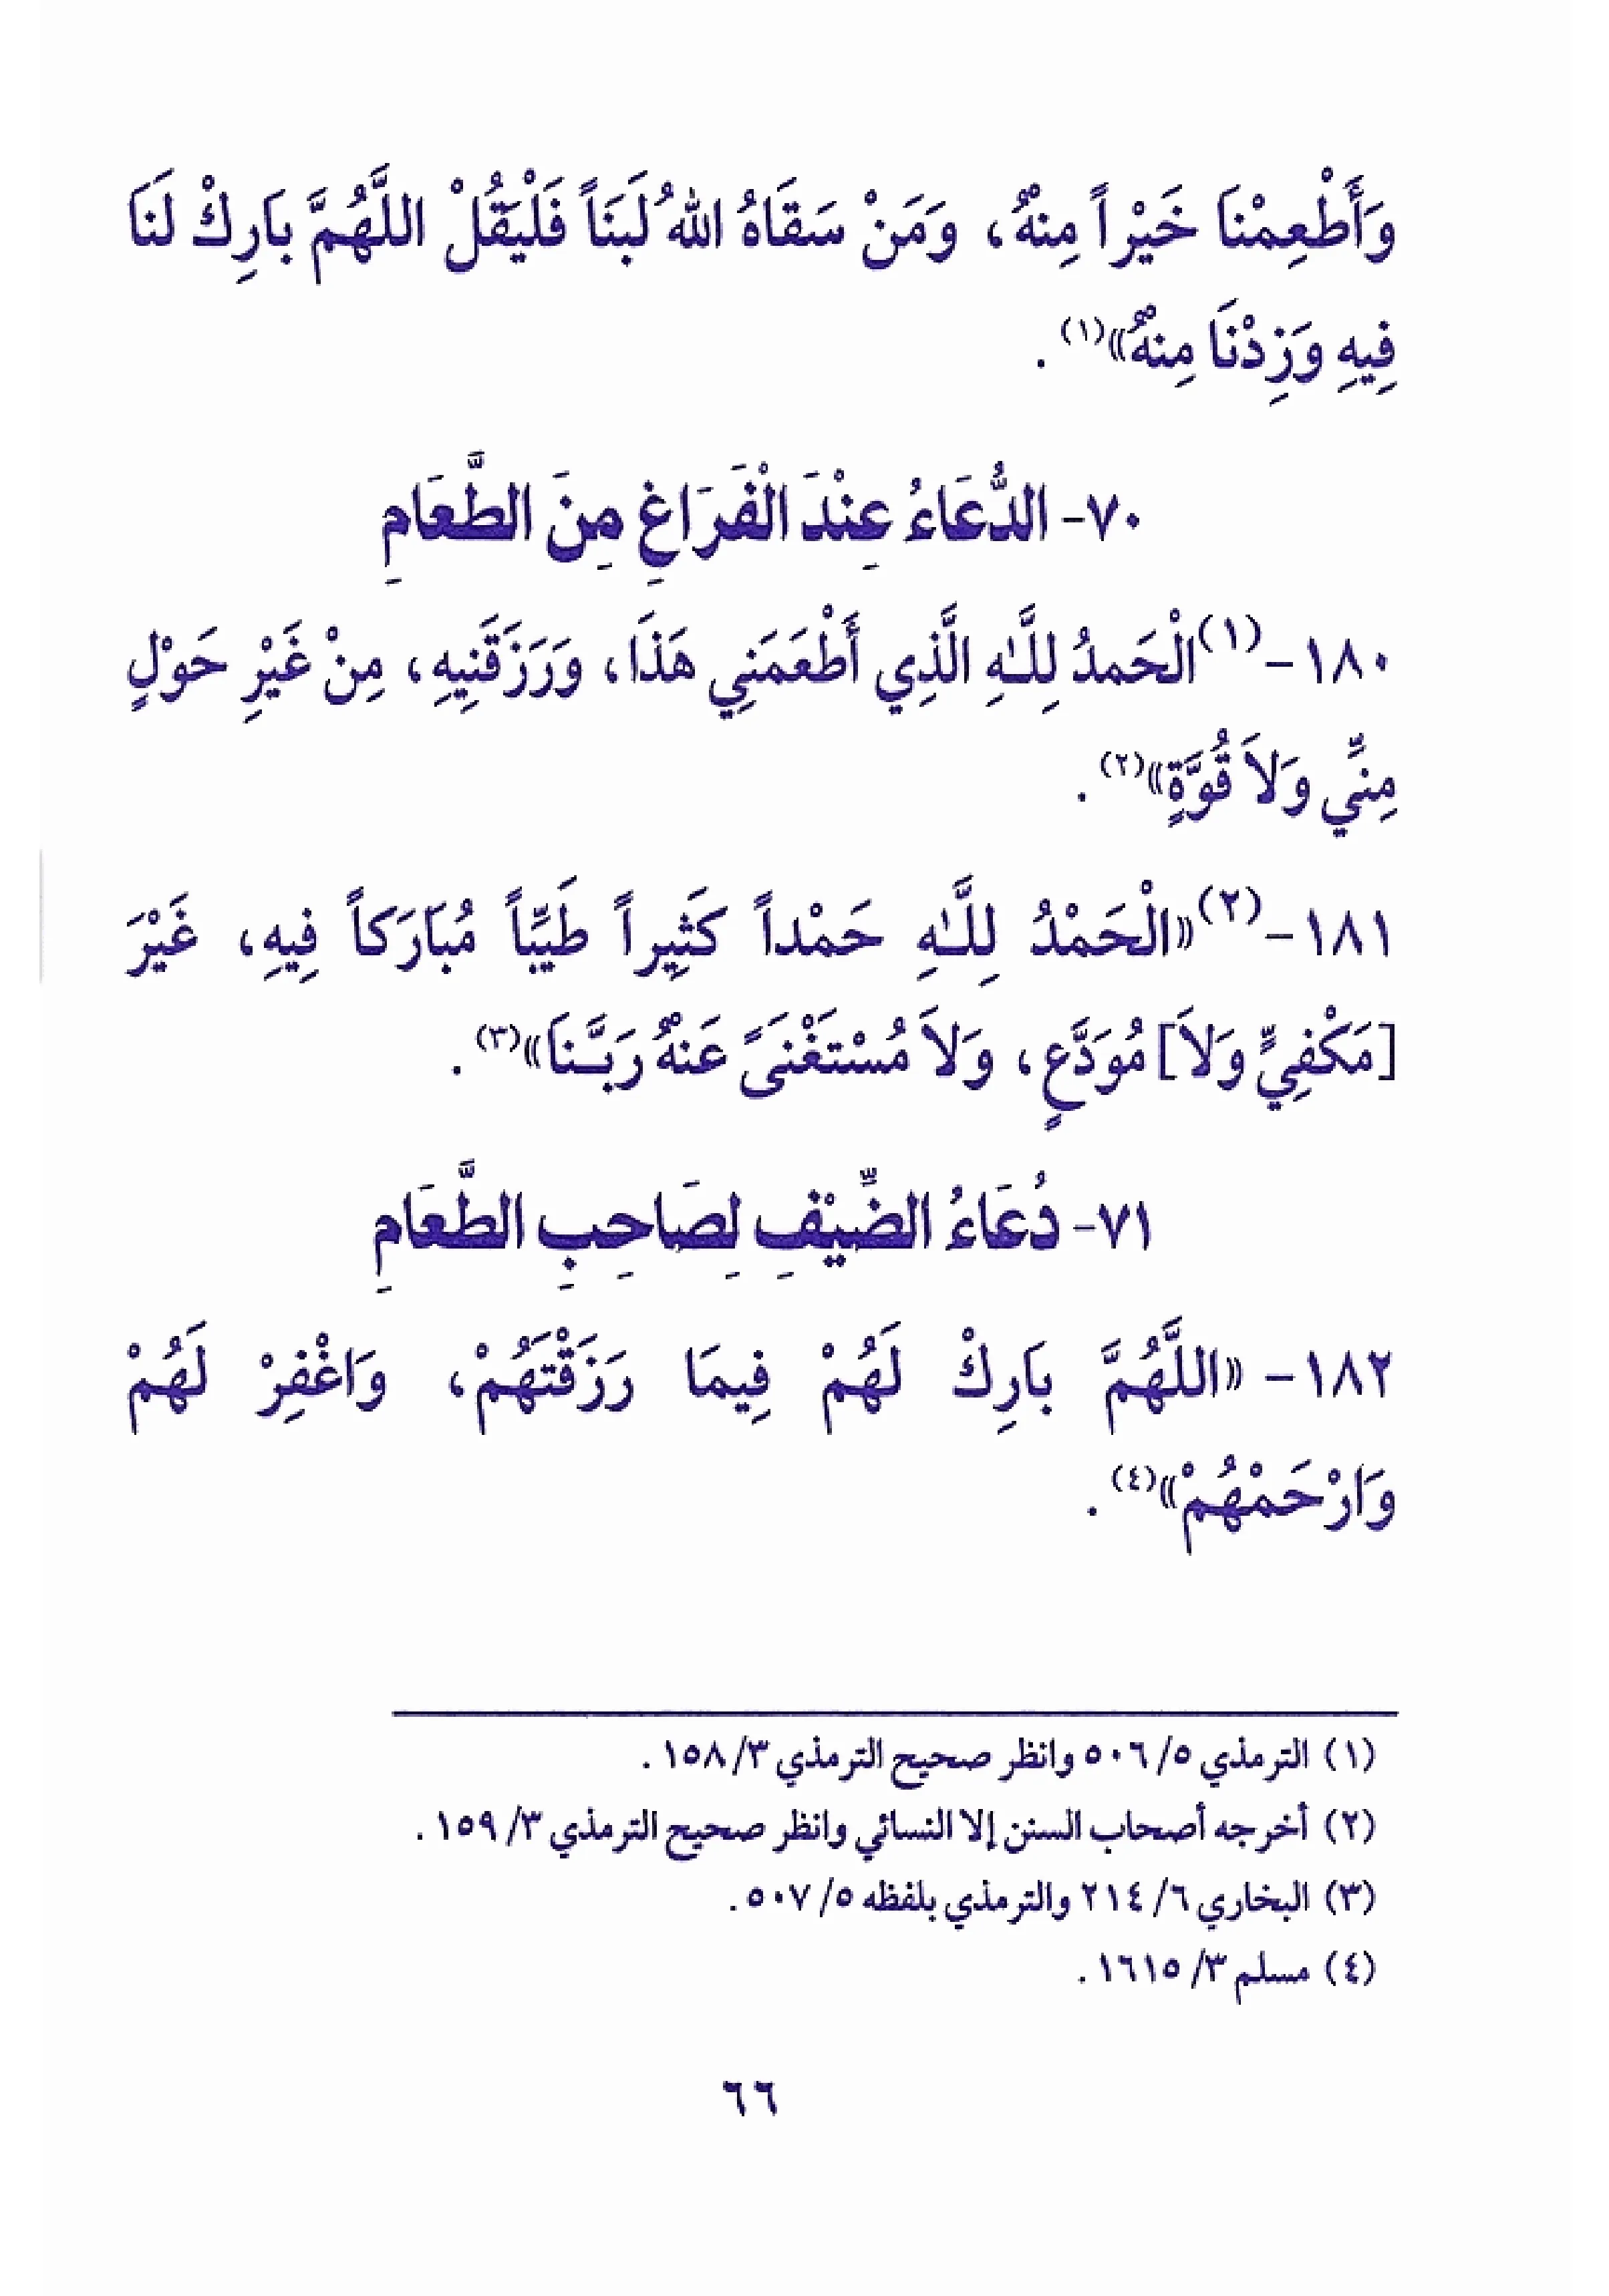 وَأَطْعِمْنَا خَيْراً مِنْهُ، وَمَنْ سَقَاهُ اللهُ لَبَنَاً فَلْيَقُلْ اللَّهُمَّ بَارِكْ لَنَا
فِيهِ وَزِدْنَا مِنْهُ»(١) .
٧٠- الدُّعَاءُ عِنْدَ الْفَرَاغِ مِنَ الطَّعَامِ
١٨٠-(١)الْحَمدُ لِلَّـٰهِ الَّذِي أَطْعَمَنِي هَذَا، وَرَزَقَنِيهِ، مِنْ غَيْرِ حَوْلٍ
مِنِّي وَلاَ قُوَّةٍ»(٢) .
١٨١-(٢)«الْحَمْدُ لِلَّـٰهِ حَمْداً كَثِيراً طَيِّباً مُبَارَكاً فِيهِ، غَيْرَ
[مَكْفِيٍّ وَلاَ] مُوَدَّعٍ، وَلاَ مُسْتَغْنَىً عَنْهُ رَبَّـنَا»(٣) .
٧١- دُعَاءُ الضِّيْفِ لِصَاحِبِ الطَّعَامِ
١٨٢- «اللَّهُمَّ بَارِكْ لَهُمْ فِيمَا رَزَقْتَهُمْ، وَاغْفِرْ لَهُمْ
وَارْحَمْهُمْ»(٤) .
(١) الترمذي ٥/ ٥٠٦ وانظر صحيح الترمذي ٣/ ١٥٨ .
(٢) أخرجه أصحاب السنن إلا النسائي وانظر صحيح الترمذي ٣/ ١٥٩ .
(٣) البخاري ٦/ ٢١٤ والترمذي بلفظه ٥/ ٥٠٧ .
(٤) مسلم ٣/ ١٦١٥ .
٦٦